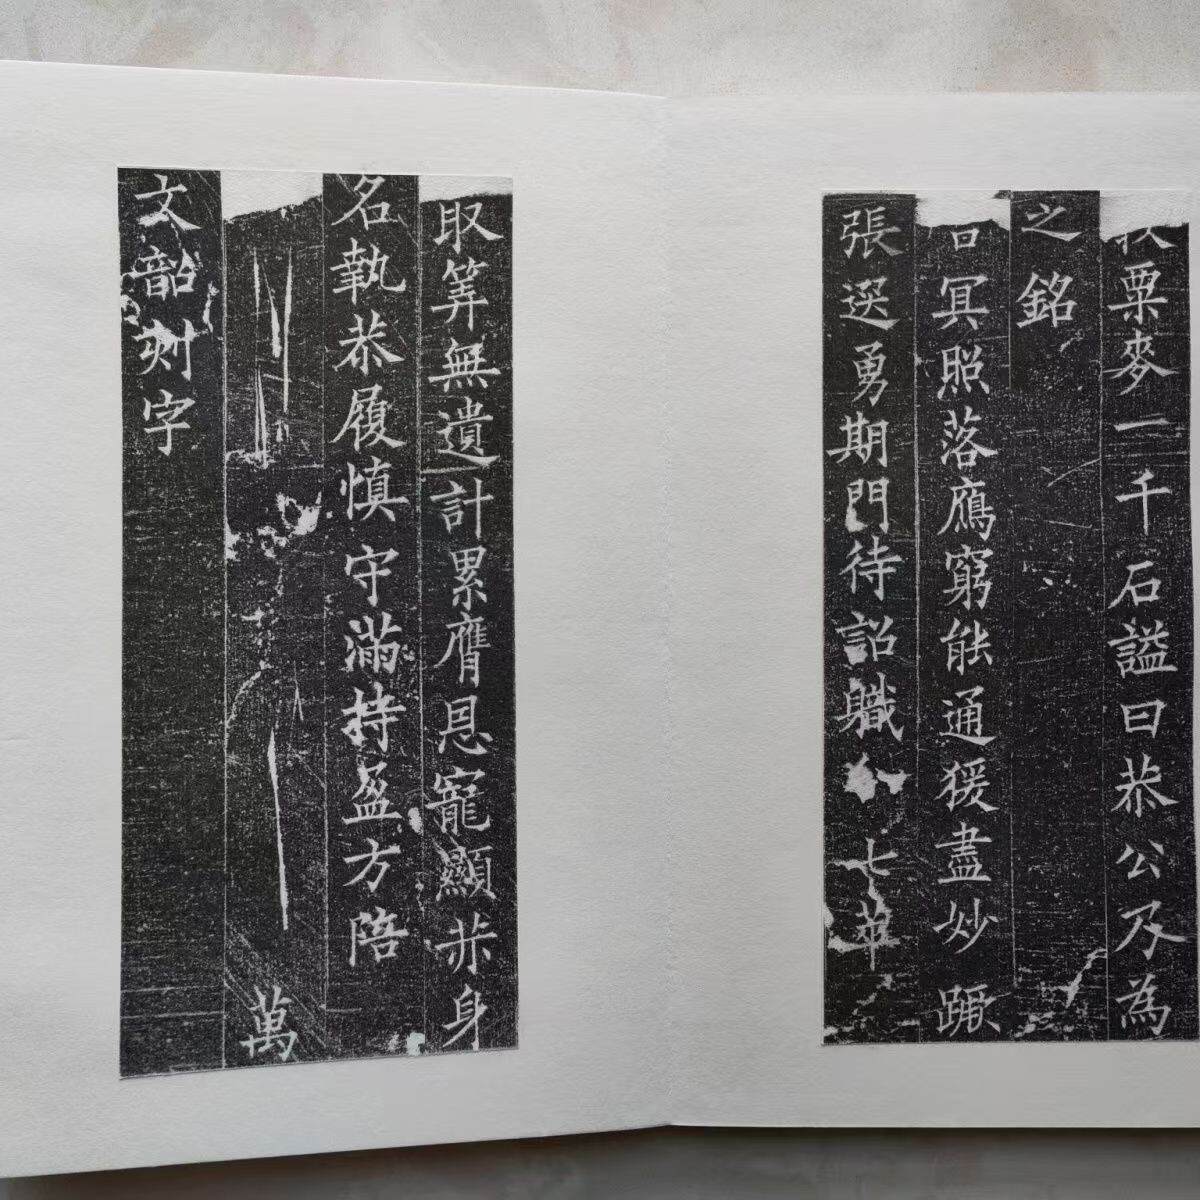 粟麥一千石謚曰恭公乃為
之銘
冥照落鴈窮能通猨盡妙蹶
張選勇期門待詔職七萃
取筭無遺計累膺恩寵顯身
名執恭履慎守滿持盈方陪
萬
文韶刻字